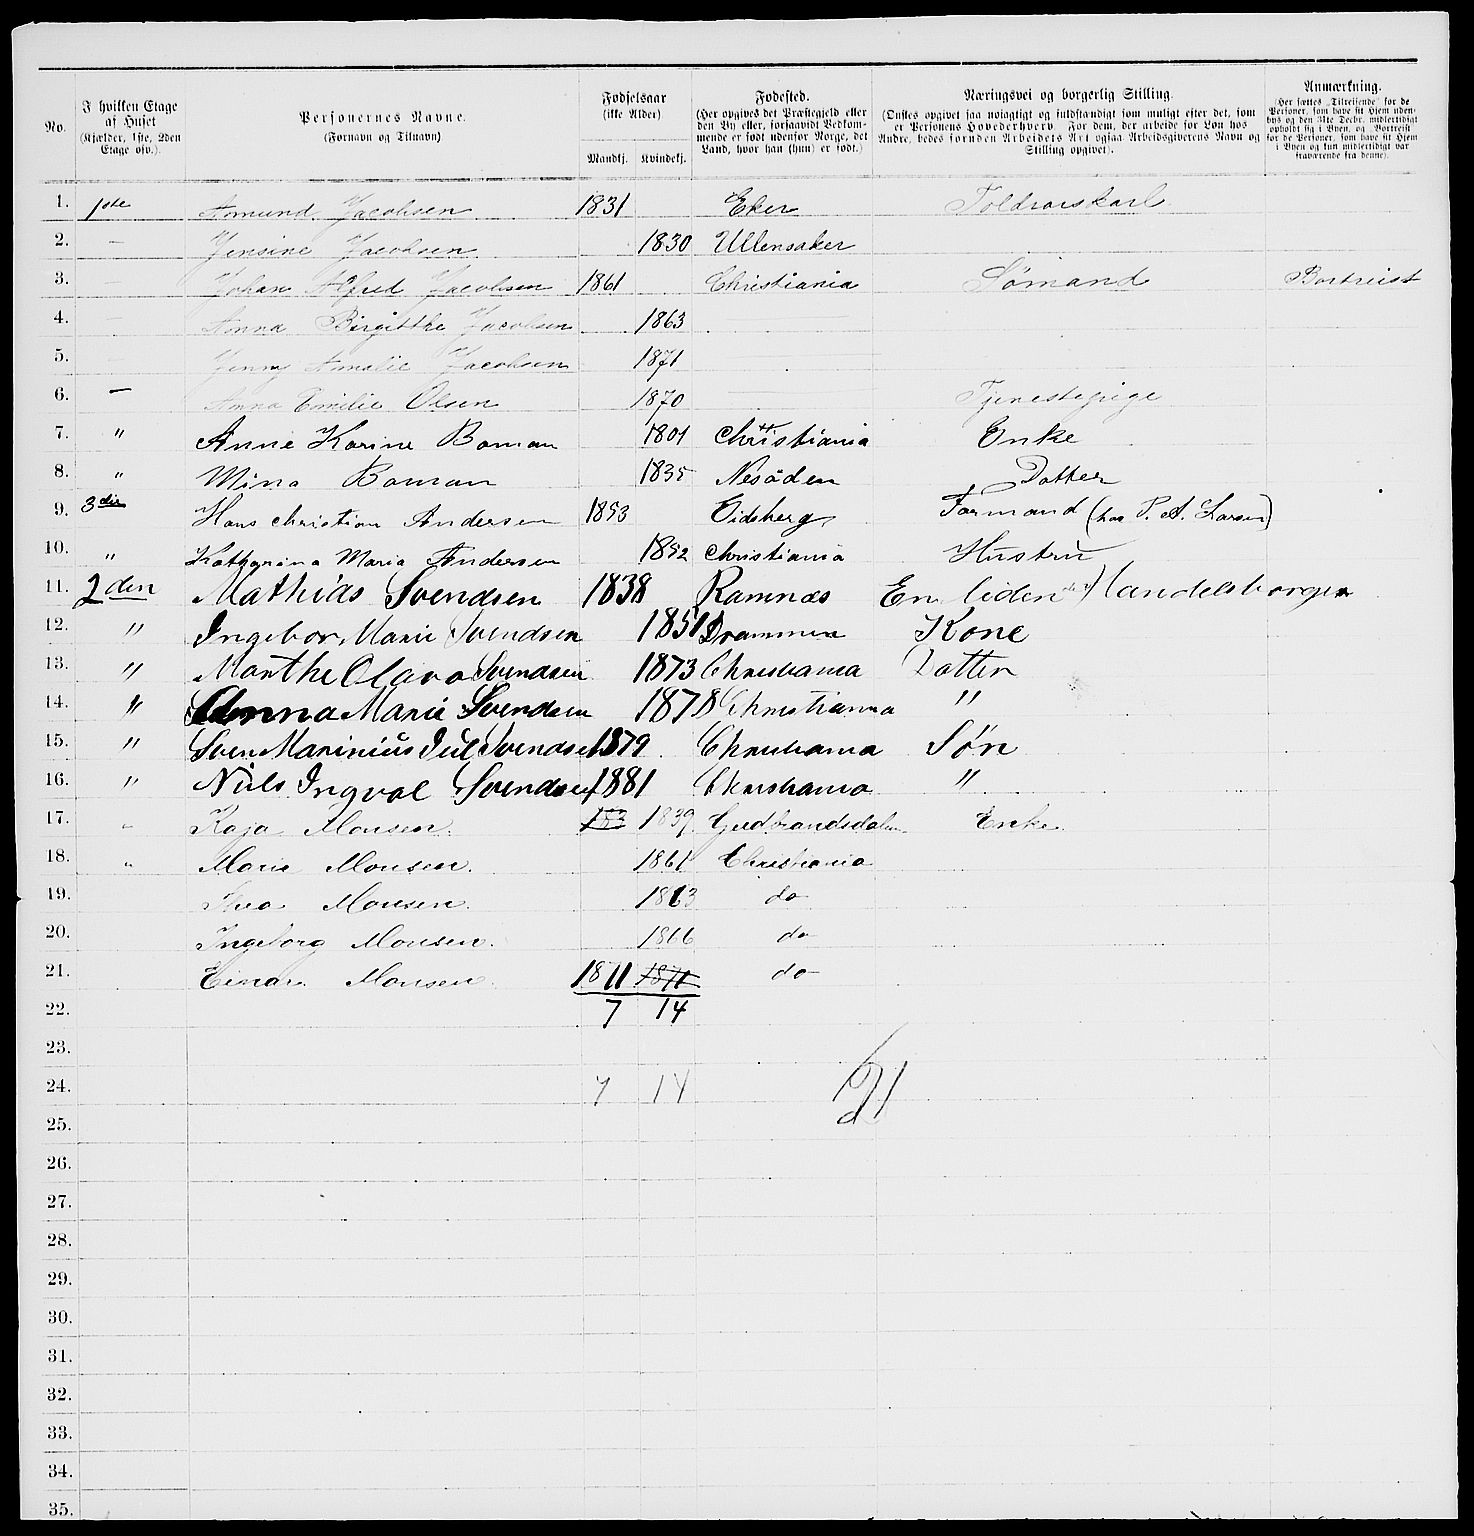 No. I hvilken Etage af Huset (Kjælder, 1ste, 2den Etage osv.). Personernes Navne. (Fornavn og Tilnavn) Fødselsaar (ikke Alder) Mandkj. Kvindekj. Fødested. (Her opgives det Præstegjeld eller den By eller, forsaavidt Vedkommende er født udenfor Norge, det Land, hvor han (hun) er født.) Næringsvei og borgerlig Stilling. (Ønskes opgivet saa nøiagtigt og fuldstændigt som muligt efter det, som er Personens Hovederhverv. For dem, der arbeide for Løn hos Andre, bedes foruden Arbeidets Art ogsaa Arbeidsgiverens Navn og Stilling opgivet). Anmærkning. (Her sættes „Tilreisende" for de Personer, som have sit Hjem udenbys og den 31te Decbr. midlertidigt opholdt sig i Byen, og „Bortreist" for de Personer, som have sit Hjem i Byen og kun midlertidigt var fraværende fra denne).
1. 1ste Amund Jacobsen 1831 Eker Toldrorskarl
2. — Jensine Jacobsen 1830 Ullensaker
3. — Johan Alfred Jacobsen 1861 Christiania Sømand Bortreist
4. — Anna Birgitthe Jacobsen 1863 —
5. — Jenny Amalie Jacobsen 1871
6. — Anna Emilie Olsen 1870 — Tjenestepige
7. " Anne Karine Boman 1801 Christiania Enke
8. " Mina Boman 1835 Nesodden Datter
9. 3die Hans Christian Andersen 1853 Eidsberg Formand (hos P. A. Larsen)
10. " Katharina Maria Andersen 1852 Christiania Hustru
11. 2den Mathias Svendsen 1838 Ramnæs En liden Handelsborger
12. " Ingebor Marie Svendsen 1851 Drammen Kone
13. " Marthe Olava Svendsen 1873 Christiania Datter
14. " Anna Marie Svendsen 1878 Christianna "
15. " Sven Marinius Jul Svendsen 1879 Christiania Søn
16. " Nils Ingval Svendsen 1881 Christiania "
17. " Kaja Monsen. 183 1839 Gudbrandsdalen Enke
18. " Maria Monsen. 1861 Christiania
19. Thea Monsen. 1863 do
20. Ingeborg Monsen. 1866 do
21. Einar Monsen. 1871 1871 do
22. 7 14
23.
24. 7 14 21
25.
26.
27.
28.
29.
30.
31.
32.
33.
34.
35.